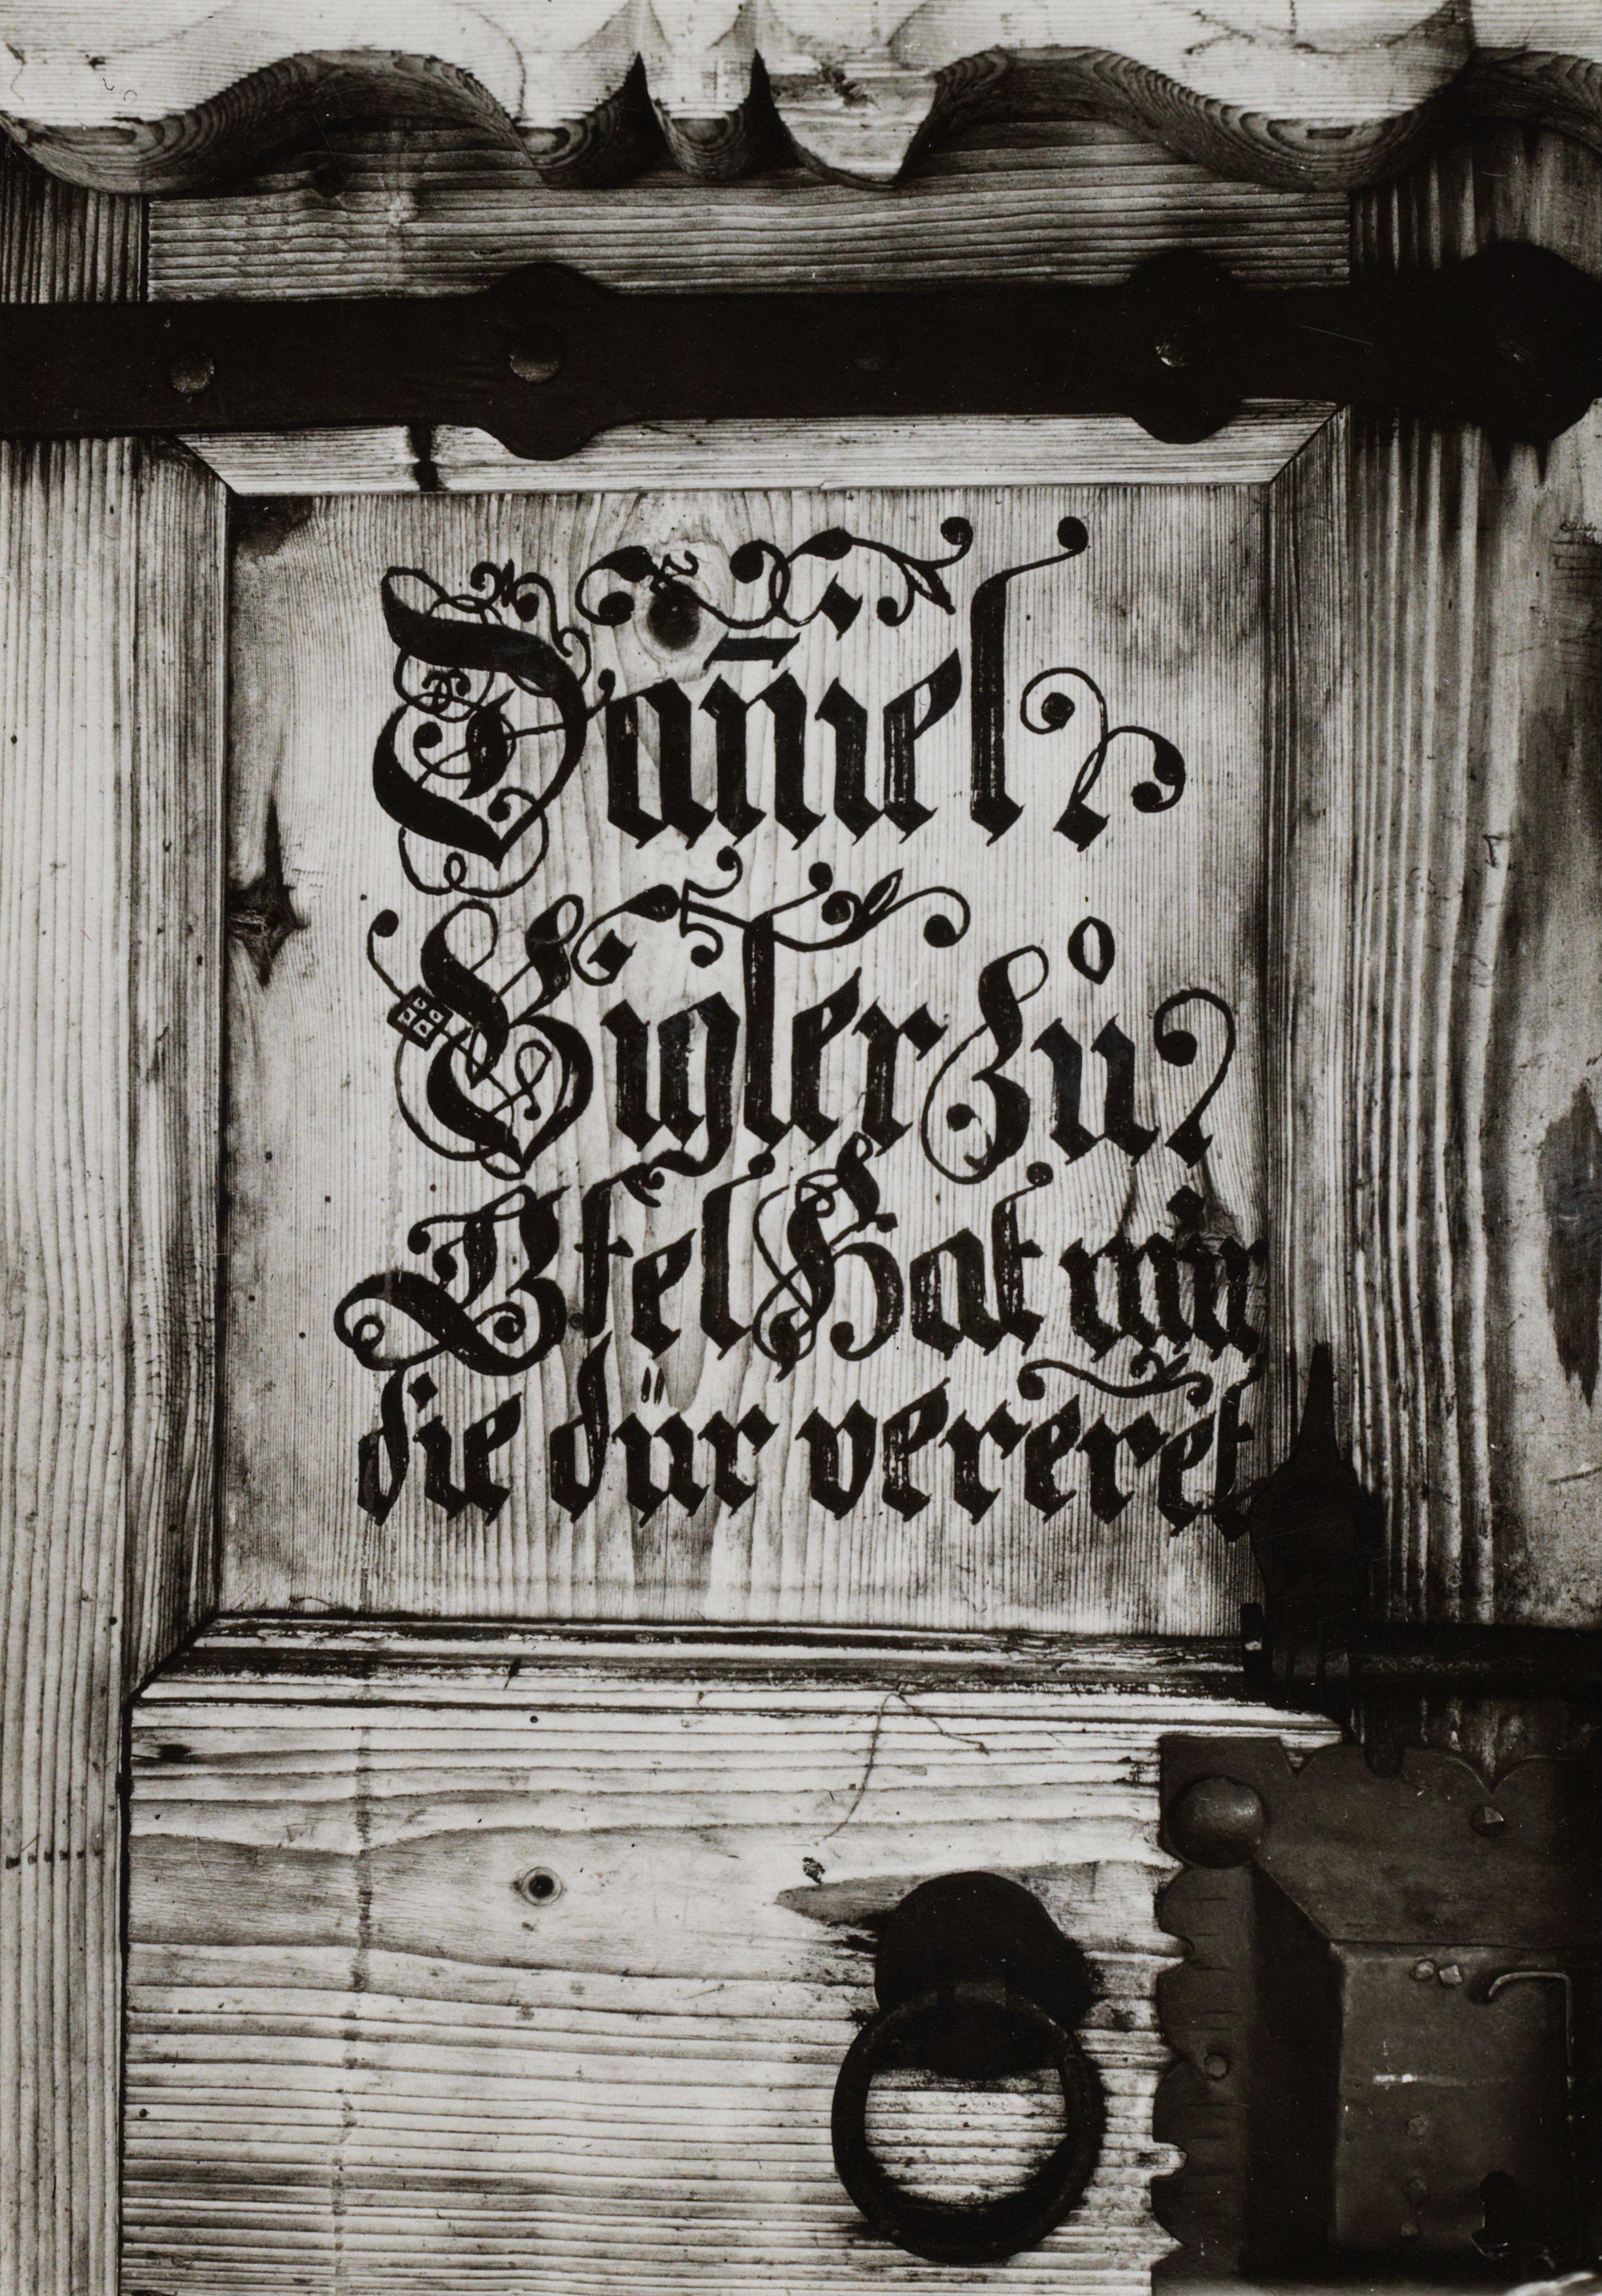 Dan̄iel
Bigler zů
Bfel Hat mir
die dür vereret